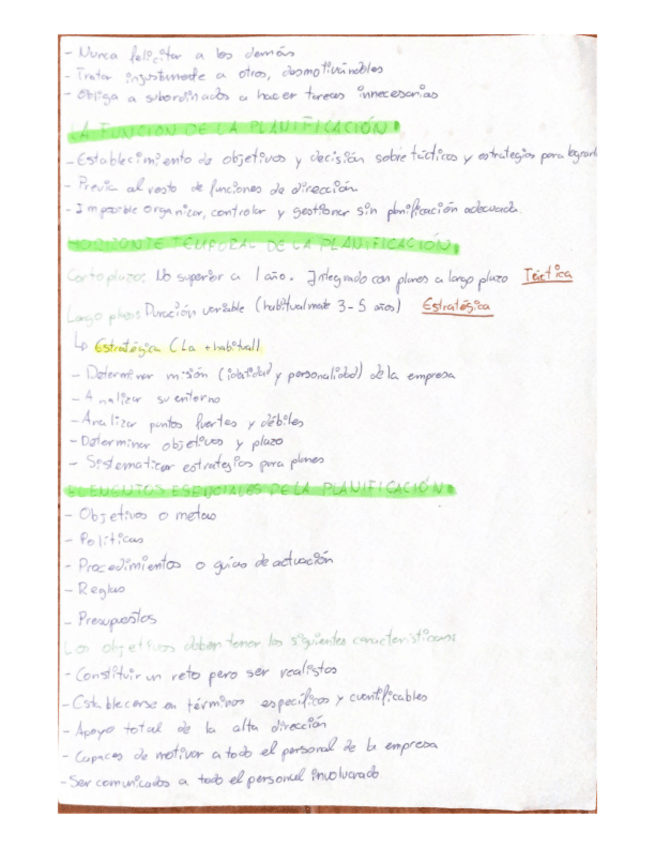 - Nunca felicitar a los demás
- Tratar injustamente a otros, desmotivándoles
- Obliga a subordinados a hacer tareas innecesarias
LA FUNCIÓN DE LA PLANIFICACIÓN:
- Establecimiento de objetivos y decisión sobre tácticas y estrategias para lograrlo
- Previa al resto de funciones de dirección
- Imposible organizar, controlar y gestionar sin planificación adecuada.
HORIZONTE TEMPORAL DE LA PLANIFICACIÓN:
Corto plazo: No superior a 1 año. Integrado con planes a largo plazo Táctica
Largo plazo: Duración variable (habitualmente 3-5 años) Estratégica
↳ Estratégica (La + habitual)
- Determinar misión (identidad y personalidad) de la empresa
- Analizar su entorno
- Analizar puntos fuertes y débiles
- Determinar objetivos y plazo
- Sistematizar estrategias para planes
ELEMENTOS ESENCIALES DE LA PLANIFICACIÓN:
- Objetivos o metas
- Políticas
- Procedimientos o guías de actuación
- Reglas
- Presupuestos
Los objetivos deben tener las siguientes características:
- Constituir un reto pero ser realistas
- Establecerse en términos específicos y cuantificables
- Apoyo total de la alta dirección
- Capaces de motivar a todo el personal de la empresa
- Ser comunicados a todo el personal involucrado